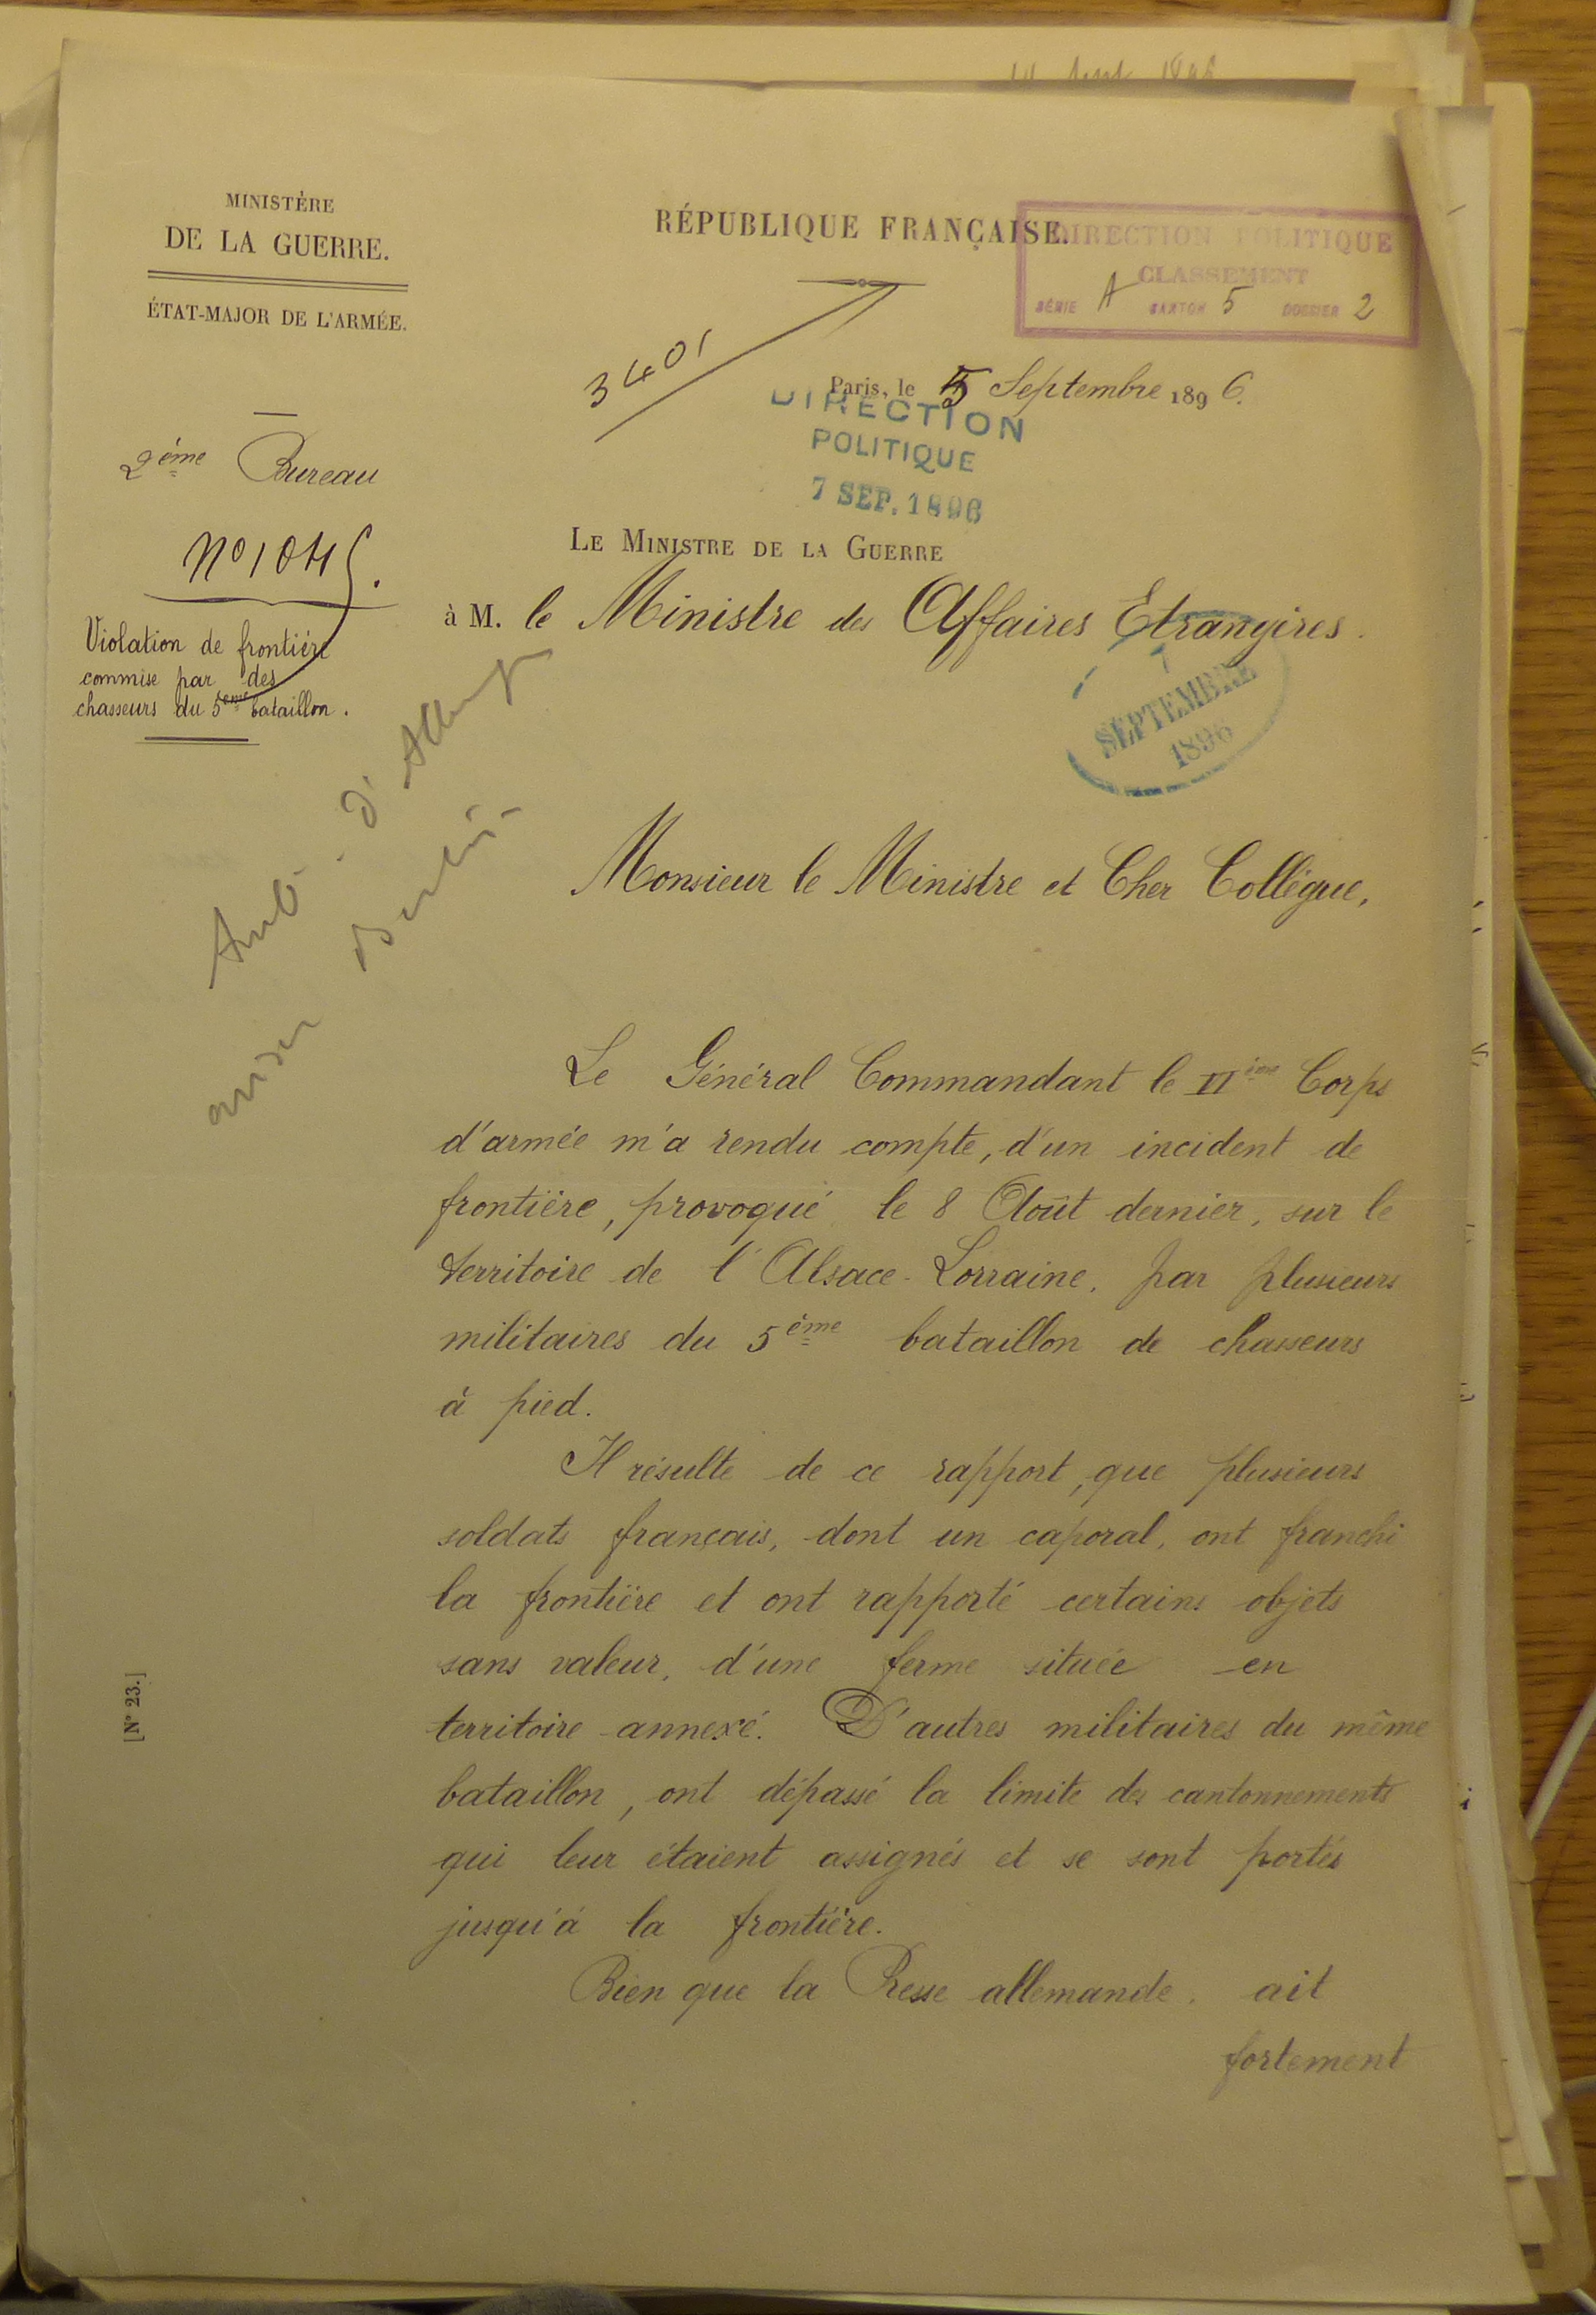 MINISTÈRE
DE LA GUERRE.
ÉTAT-MAJOR DE L'ARMÉE.
2ème Bureau
No 1045.
Violation de frontière
commise par des
chasseurs du 5ème bataillon.
RÉPUBLIQUE FRANÇAISE.
DIRECTION POLITIQUE
CLASSEMENT
SÉRIE A CARTON 5 DOSSIER 2
3401
Paris, le 5 Septembre 1896.
DIRECTION
POLITIQUE
7 SEP. 1896
LE MINISTRE DE LA GUERRE
à M. le Ministre des Affaires Etrangères.
7
SEPTEMBRE
1896
Amb. d'Allemagne
aviser Berlin.
Monsieur le Ministre et Cher Collègue,
Le Général Commandant le VIème Corps
d'armée m'a rendu compte, d'un incident de
frontière, provoqué le 8 Août dernier, sur le
territoire de l'Alsace-Lorraine, par plusieurs
militaires du 5ème bataillon de chasseurs
à pied.
Il résulte de ce rapport, que plusieurs
soldats français, dont un caporal, ont franchi
la frontière et ont rapporté certains objets
sans valeur, d'une ferme située en
territoire annexé. D'autres militaires du même
bataillon, ont dépassé la limite des cantonnements
qui leur étaient assignés et se sont portés
jusqu'à la frontière.
Bien que la Presse allemande, ait
fortement
[N° 23.]